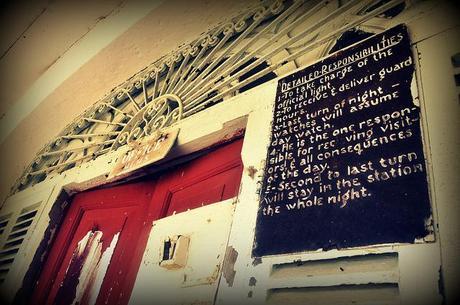 DETAILED-RESPONSIBILITIES
1.-To take charge of the
official light.
2.-To receive & deliver guard
hours.
3:-Last turn of night-
watches will assume
day watch.
4.-He is the one respon-
sible for receiving visit-
ors & all consequences
of the day.
5.-Second to last turn
will stay in the station
the whole night.
OFFICE